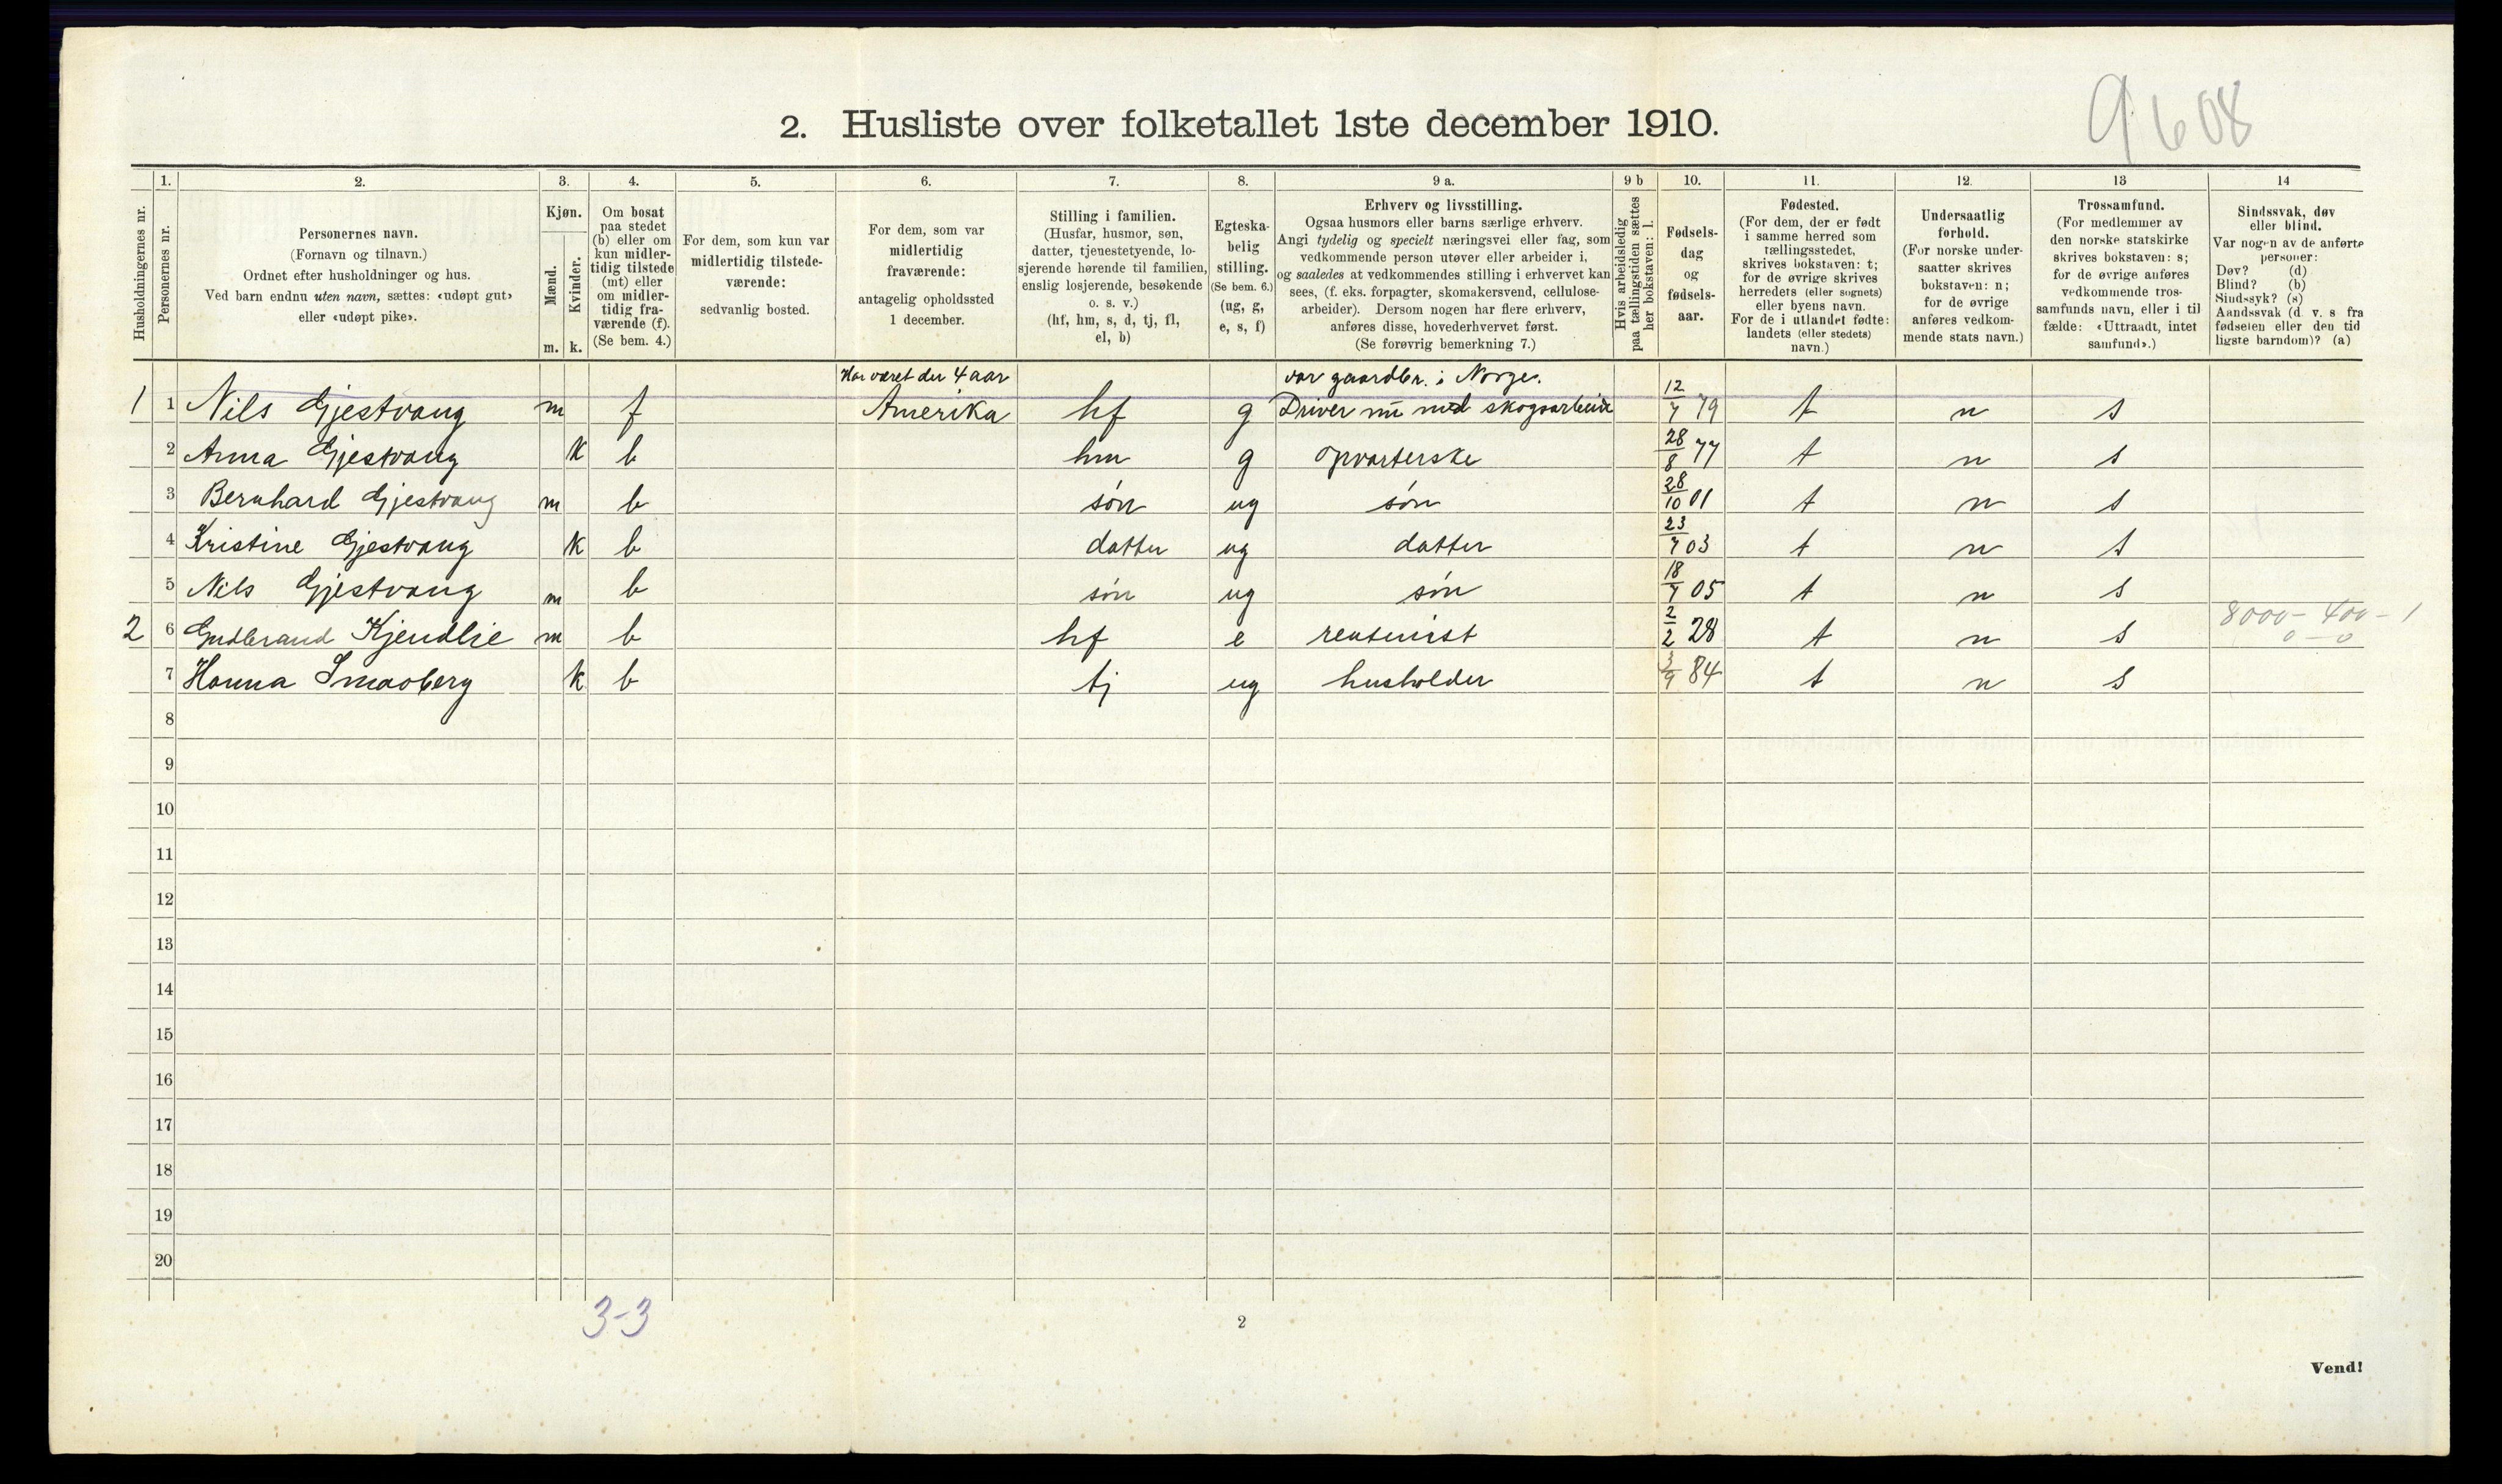 9608
2. Husliste over folketallet 1ste december 1910.
Husholdningernes nr.
1. Personernes nr.
2. Personernes navn.
(Fornavn og tilnavn.)
Ordnet efter husholdninger og hus.
Ved barn endnu uten navn, sættes: «udøpt gut»
eller «udøpt pike».
3. Kjøn.
Mænd. m.
Kvinder. k.
4. Om bosat
paa stedet
(b) eller om
kun midler-
tidig tilstede
(mt) eller
om midler-
tidig fra-
værende (f).
(Se bem. 4.)
5. For dem, som kun var
midlertidig tilstede-
værende:
sedvanlig bosted.
6. For dem, som var
midlertidig
fraværende:
antagelig opholdssted
1 december.
7. Stilling i familien.
(Husfar, husmor, søn,
datter, tjenestetyende, lo-
sjerende hørende til familien,
enslig losjerende, besøkende
o. s. v.)
(hf, hm, s, d, tj, fl,
el, b)
8. Egteska-
belig
stilling.
(Se bem. 6.)
(ug, g,
e, s, f)
9 a. Erhverv og livsstilling.
Ogsaa husmors eller barns særlige erhverv.
Angi tydelig og specielt næringsvei eller fag, som
vedkommende person utøver eller arbeider i,
og saaledes at vedkommendes stilling i erhvervet kan
sees, (f. eks. forpagter, skomakersvend, cellulose-
arbeider). Dersom nogen har flere erhverv,
anføres disse, hovederhvervet først.
(Se forøvrig bemerkning 7.)
9 b Hvis arbeidsledig
paa tællingstiden sættes
her bokstaven: l.
10. Fødsels-
dag
og
fødsels-
aar.
11. Fødested.
(For dem, der er født
i samme herred som
tællingsstedet,
skrives bokstaven: t;
for de øvrige skrives
herredets (eller sognets)
eller byens navn.
For de i utlandet fødte:
landets (eller stedets)
navn.)
12. Undersaatlig
forhold.
(For norske under-
saatter skrives
bokstaven: n;
for de øvrige
anføres vedkom-
mende stats navn.)
13 Trossamfund.
(For medlemmer av
den norske statskirke
skrives bokstaven: s;
for de øvrige anføres
vedkommende tros-
samfunds navn, eller i til
fælde: «Uttraadt, intet
samfund».)
14 Sindssvak, døv
eller blind.
Var nogen av de anførte
personer:
Døv? (d)
Blind? (b)
Sindssyk? (s)
Aandssvak (d. v. s fra
fødselen eller den tid
ligste barndom)? (a)
Har været der 4 aar var gaardbr. i Norge.
1 1 Nils Gjestvang m f Amerika hf g Driver nu med skogsarbeide 12/7 79 t n s
2 Anna Gjestvang k b hm g opvarterske 28/8 77 t n s
3 Bernhard Gjestvang m b søn ug søn 28/10 01 t n s
4 Kristine Gjestvang k b datter ug datter 23/7 03 t n s
5 Nils Gjestvang m b søn ug søn 18/7 05 t n s
8000 - 400 - 1
2 6 Gudbrand Kjendlie m b hf e rentenist 2/2 28 t n s 0 - 0
7 Hanna Smaaberg k b tj ug husholder 3/9 84 t n s
8
9
10
11
12
13
14
15
16
17
18
19
20
3-3
2
Vend!